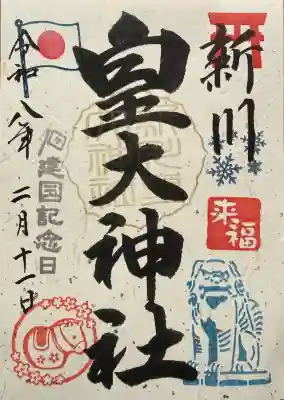 新川
皇大神社
来福
祝建国記念日
令和八年二月十一日